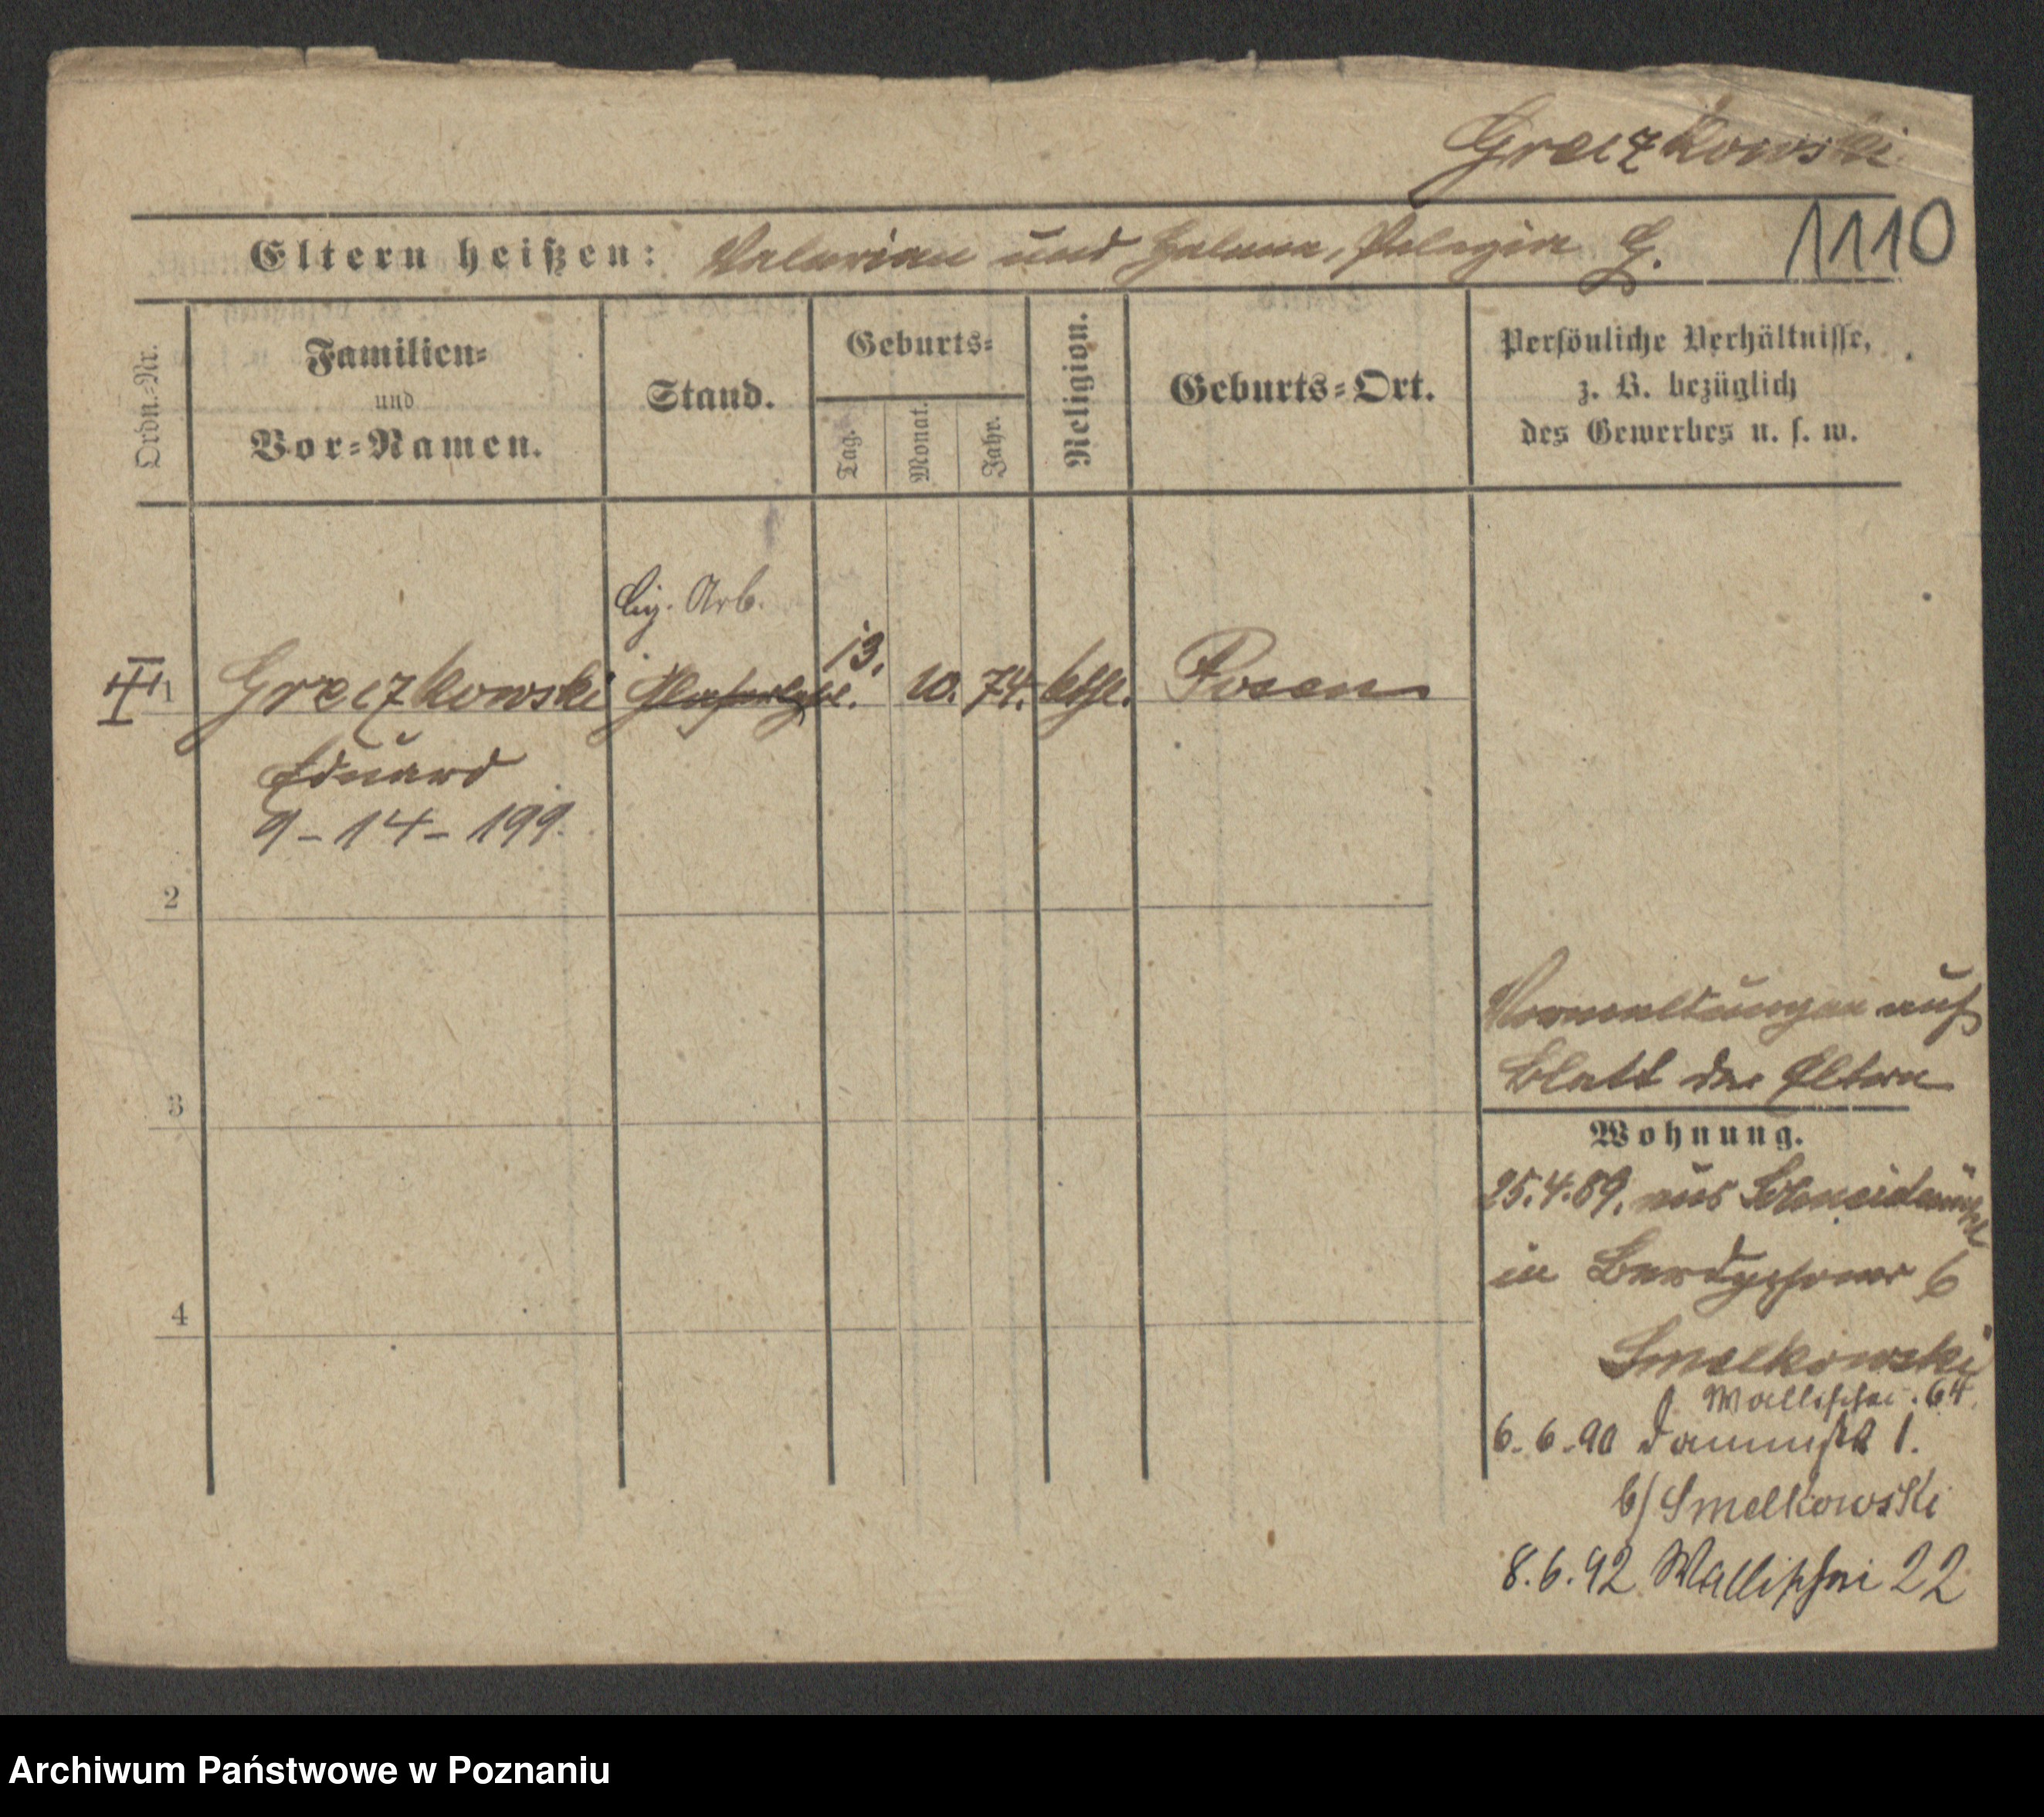 Greczkowski
Eltern heißen: Valerian und Helena, Pelagia G. 1110
Ordn.-Nr.
Familien-
und
Vor-Namen.
Stand.
Geburts-
Tag.
Monat.
Jahr.
Religion.
Geburts-Ort.
Persönliche Verhältnisse,
z. B. bezüglich
des Gewerbes u. s. w.
Cig. Arb.
1 Greczkowski 13. 10. 74. kath. Posen
Eduard
9-14-199.
2
3
4
auf
Blatt der Eltern
Wohnung.
25.4.89. aus Schneidemühl
in 6
Smelkowski
Wallischei. 64.
6.-6.-90 Dammstr 1.
b/ Smelkowski
8.6.92 Wallischei 22
Archiwum Państwowe w Poznaniu